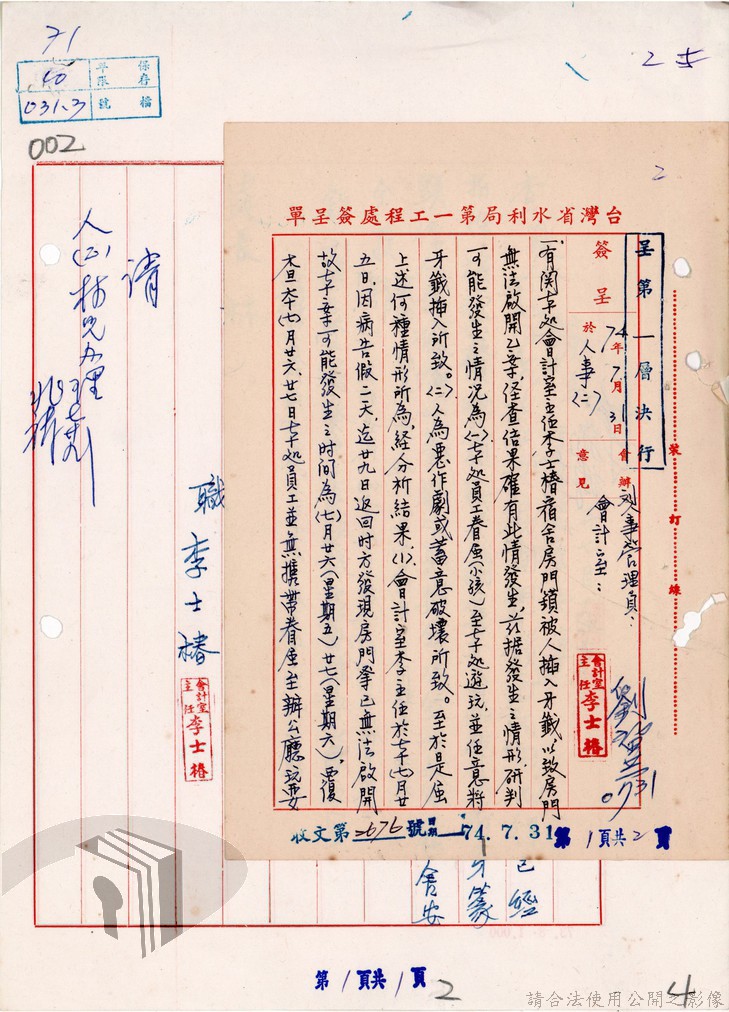 71
保存年限
10
檔號
031.3
002
25
2
台灣省水利局第一工程處簽呈單
呈第一層決行
簽呈
於
74年7月31日
人事㈡
會辦意見
人事管理員：
會計室：
會計室主任李士椿
731
一、有関本処會計室主任李士椿宿舍房門鎖被人挿入牙籤，以致房門
無法啟開乙案，經查結果確有此情發生，茲據發生之情形，研判
可能發生之情況為㈠本処員工眷屬（小孩）至本処遊玩，並任意將
牙籤挿入所致。㈡人為惡作劇或蓄意破壞所致。至於是屬
上述何種情形所為，経分析結果，⑴會計室李主任於本七月廿
五日，因病告假二天，迄廿九日返回时方發現房門拳已無法啟開
故本案可能發生之时间為七月廿六（星期五）廿七（星期六），
本七月廿六、廿七日本処員工並無携帶眷屬至辦公廳玩耍
裝訂線
收文第2676號
日期
74.7.31
第1頁共2頁
已經
舍安
職李士椿
會計室主任李士椿
請
人㈡林兄办理
第1頁共1頁
2
4
請合法使用公開之影像